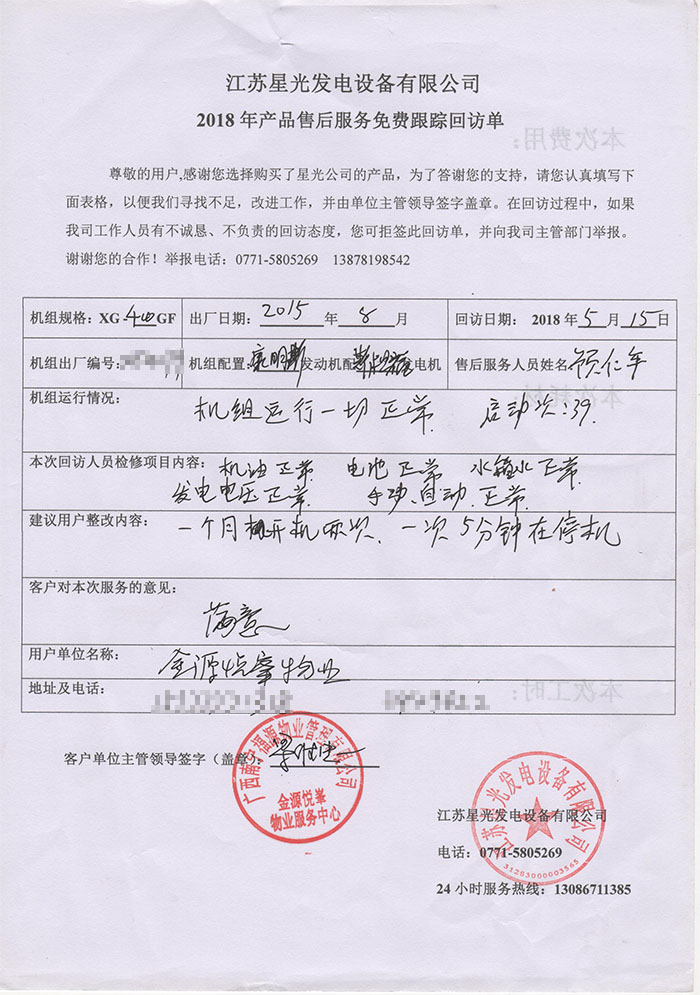 江苏星光发电设备有限公司
2018 年产品售后服务免费跟踪回访单
尊敬的用户,感谢您选择购买了星光公司的产品，为了答谢您的支持，请您认真填写下
面表格，以便我们寻找不足，改进工作，并由单位主管领导签字盖章。在回访过程中，如果
我司工作人员有不诚恳、不负责的回访态度，您可拒签此回访单，并向我司主管部门举报。
谢谢您的合作！举报电话：0771-5805269 13878198542
机组规格：XG-400GF 出厂日期：2015年8月 回访日期：2018年5月15日
机组出厂编号： 机组配置：康明斯发动机配斯坦福发电机 售后服务人员姓名
机组运行情况：机组运行一切正常 启动次:39.
本次回访人员检修项目内容：机油正常 电池正常 水箱水正常
发电电压正常 手动、自动、正常
建议用户整改内容：一个月开机两次、一次5分钟在停机
客户对本次服务的意见：
满意
用户单位名称：金源悦峯物业
地址及电话：
客户单位主管领导签字（盖章）：
广西南宁福源物业管理有限公司
金源悦峯
物业服务中心
江苏星光发电设备有限公司
31283000003565
江苏星光发电设备有限公司
电话：0771-5805269
24 小时服务热线：13086711385
本次费用：
本次耗材：
本次工时：